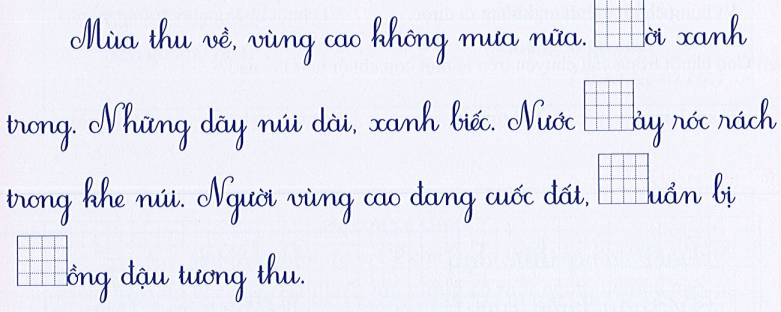 Mùa thu về, vùng cao không mưa nữa. ời xanh
trong. Những dãy núi dài, xanh biếc. Nước ảy róc rách
trong khe núi. Người vùng cao đang cuốc đất, uẩn bị
ồng đậu tương thu.